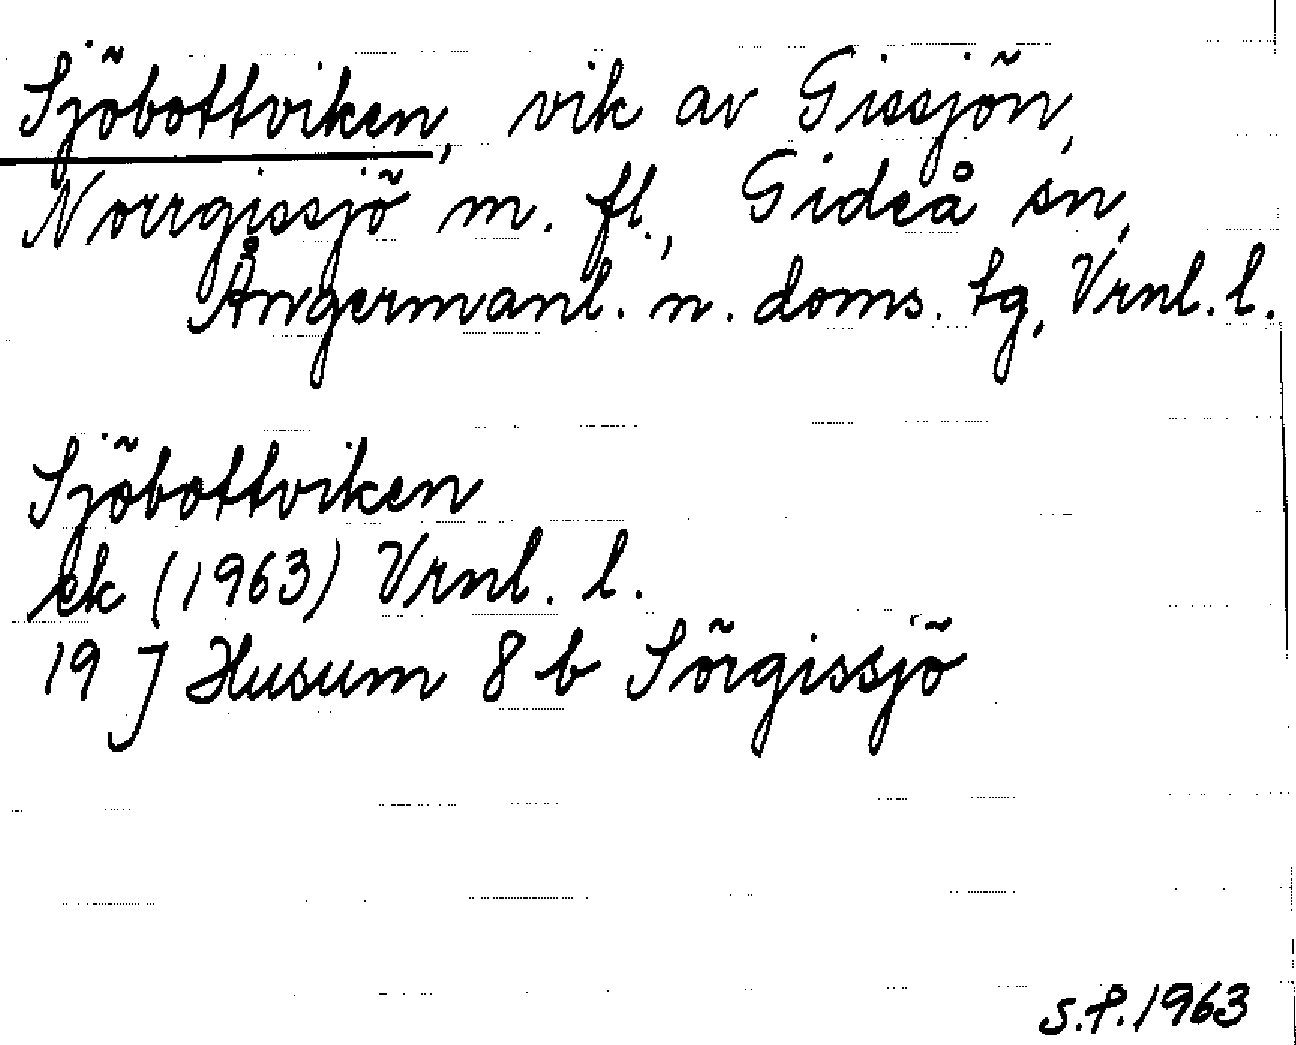 Sjöbottviken, vik av Gissjön,
Norrgissjö m. fl., Gideå sn,
Ångermanl. n. doms. tg, Vrnl. l.
Sjöbottviken
ek (1963) Vrnl. l.
19 J Husum 8 b Sörgissjö
S.P. 1963